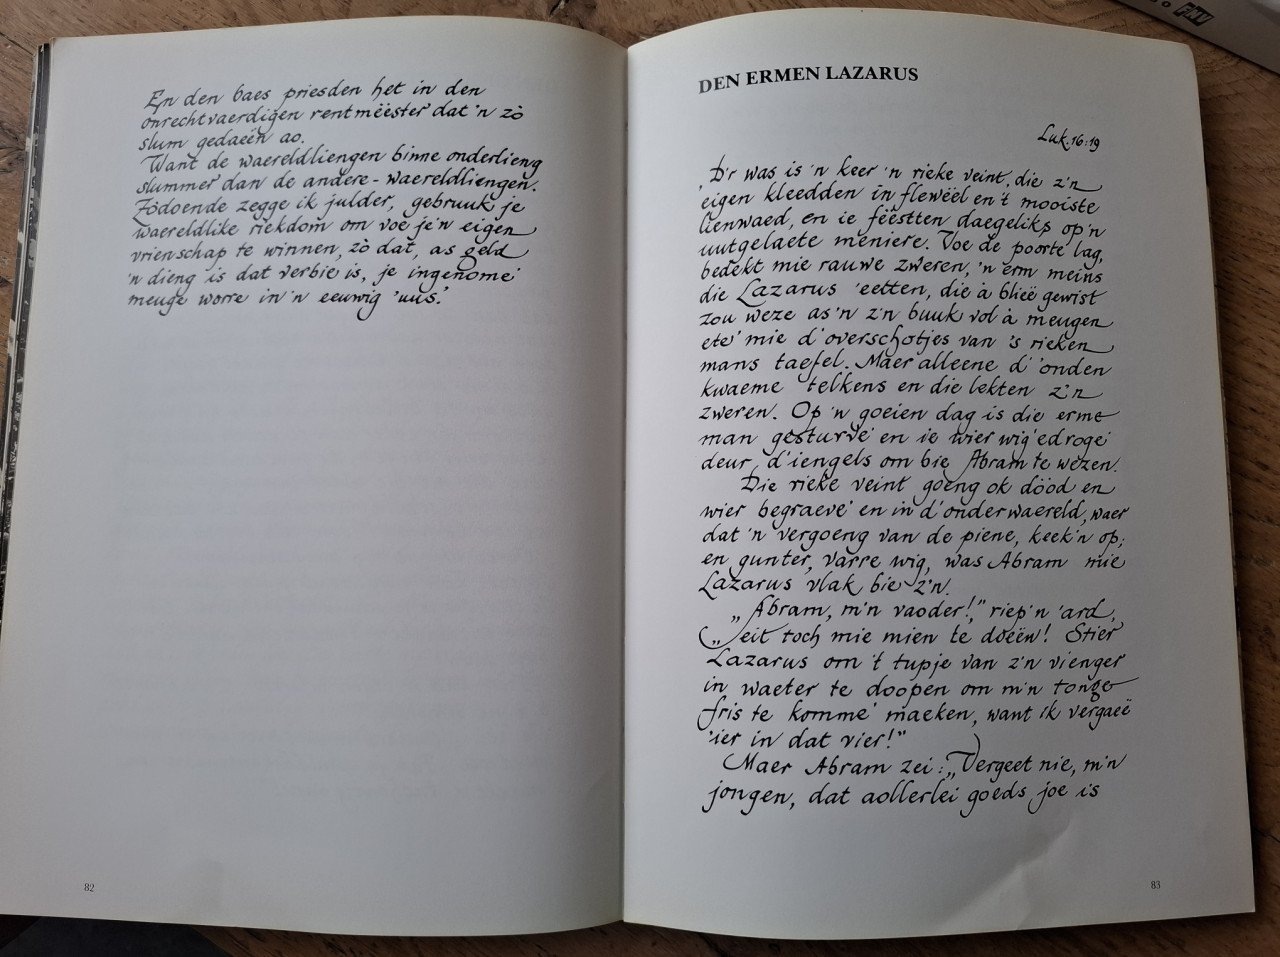 En den baes priesden het in den
onrechtvaerdigen rentmëëster dat 'n zò
slum gedaeën ao.
Want de waereldliengen binne onderlieng
slummer dan de andere - waereldliengen.
Zòdoende zegge ik julder, gebruuk je
waereldlike riekdom om voe je'n eigen
vrienschap te winnen, zò dat, as geld
'n dieng is dat verbie is, je ingenome'
meuge worre in 'n eeuwig 'uus.'
82
DEN ERMEN LAZARUS
Luk. 16:19
'D'r was is 'n keer 'n rieke veint, die z'n
eigen kleedden in fleweel en 't mooiste
lienwaed, en ie fëëstten daegeliks op 'n
uutgelaete meniere. Voe de poorte lag,
bedekt mie rauwe zweren, 'n erm meins
die Lazarus 'eetten, die à blieë gewist
zou weze as 'n z'n buuk vol à meugen
ete' mie d'overschotjes van 's rieken
mans taefel. Maer alleene d' 'onden
kwaeme telkens en die lekten z'n
zweren. Op 'n goeien dag is die erme
man gesturve' en ie wier wig'edroge'
deur d'iengels om bie Abram te wezen.
Die rieke veint goeng ok dööd en
wier begraeve' en in d'onderwaereld, waer
dat 'n vergoeng van de piene, keek 'n op;
en gunter, varre wig, was Abram mie
Lazarus vlak bie z'n.
„Abram, m'n vaoder!," riep 'n 'ard,
„'eit toch mie mien te döëën! Stier
Lazarus om 't tupje van z'n vienger
in waeter te doopen om m'n tonge
fris te komme' maeken, want ik vergaeë
'ier in dat vier!"
Maer Abram zei: „Vergeet nie, m'n
jongen, dat aollerlei goeds joe is
83
FNV